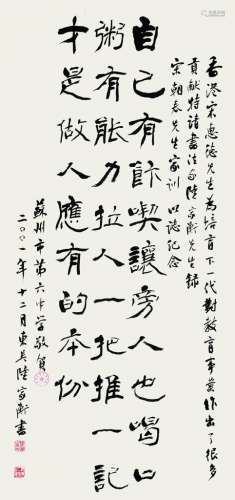 香港宋惠德先生为培育下一代对教育事业作出了很多
贡献特请书法家陆家衡先生录
宋朝春先生家训以志纪念
自己有饭喫讓旁人也喝口
粥有能力拉人一把推一記
才是做人應有的本份
蘇州市第六中学敬贺
二〇〇一年十二月東吳陸家衡書